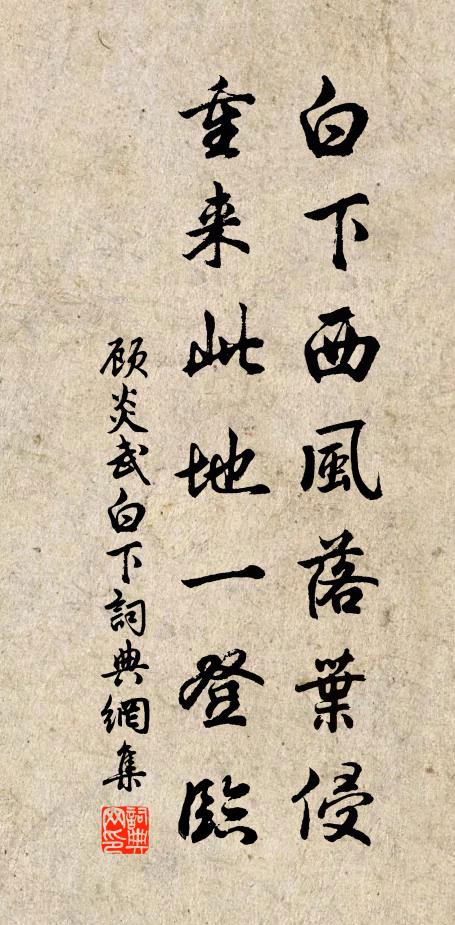 白下西風落葉侵
重来此地一登臨
顾炎武白下詞典網集
詞典網印